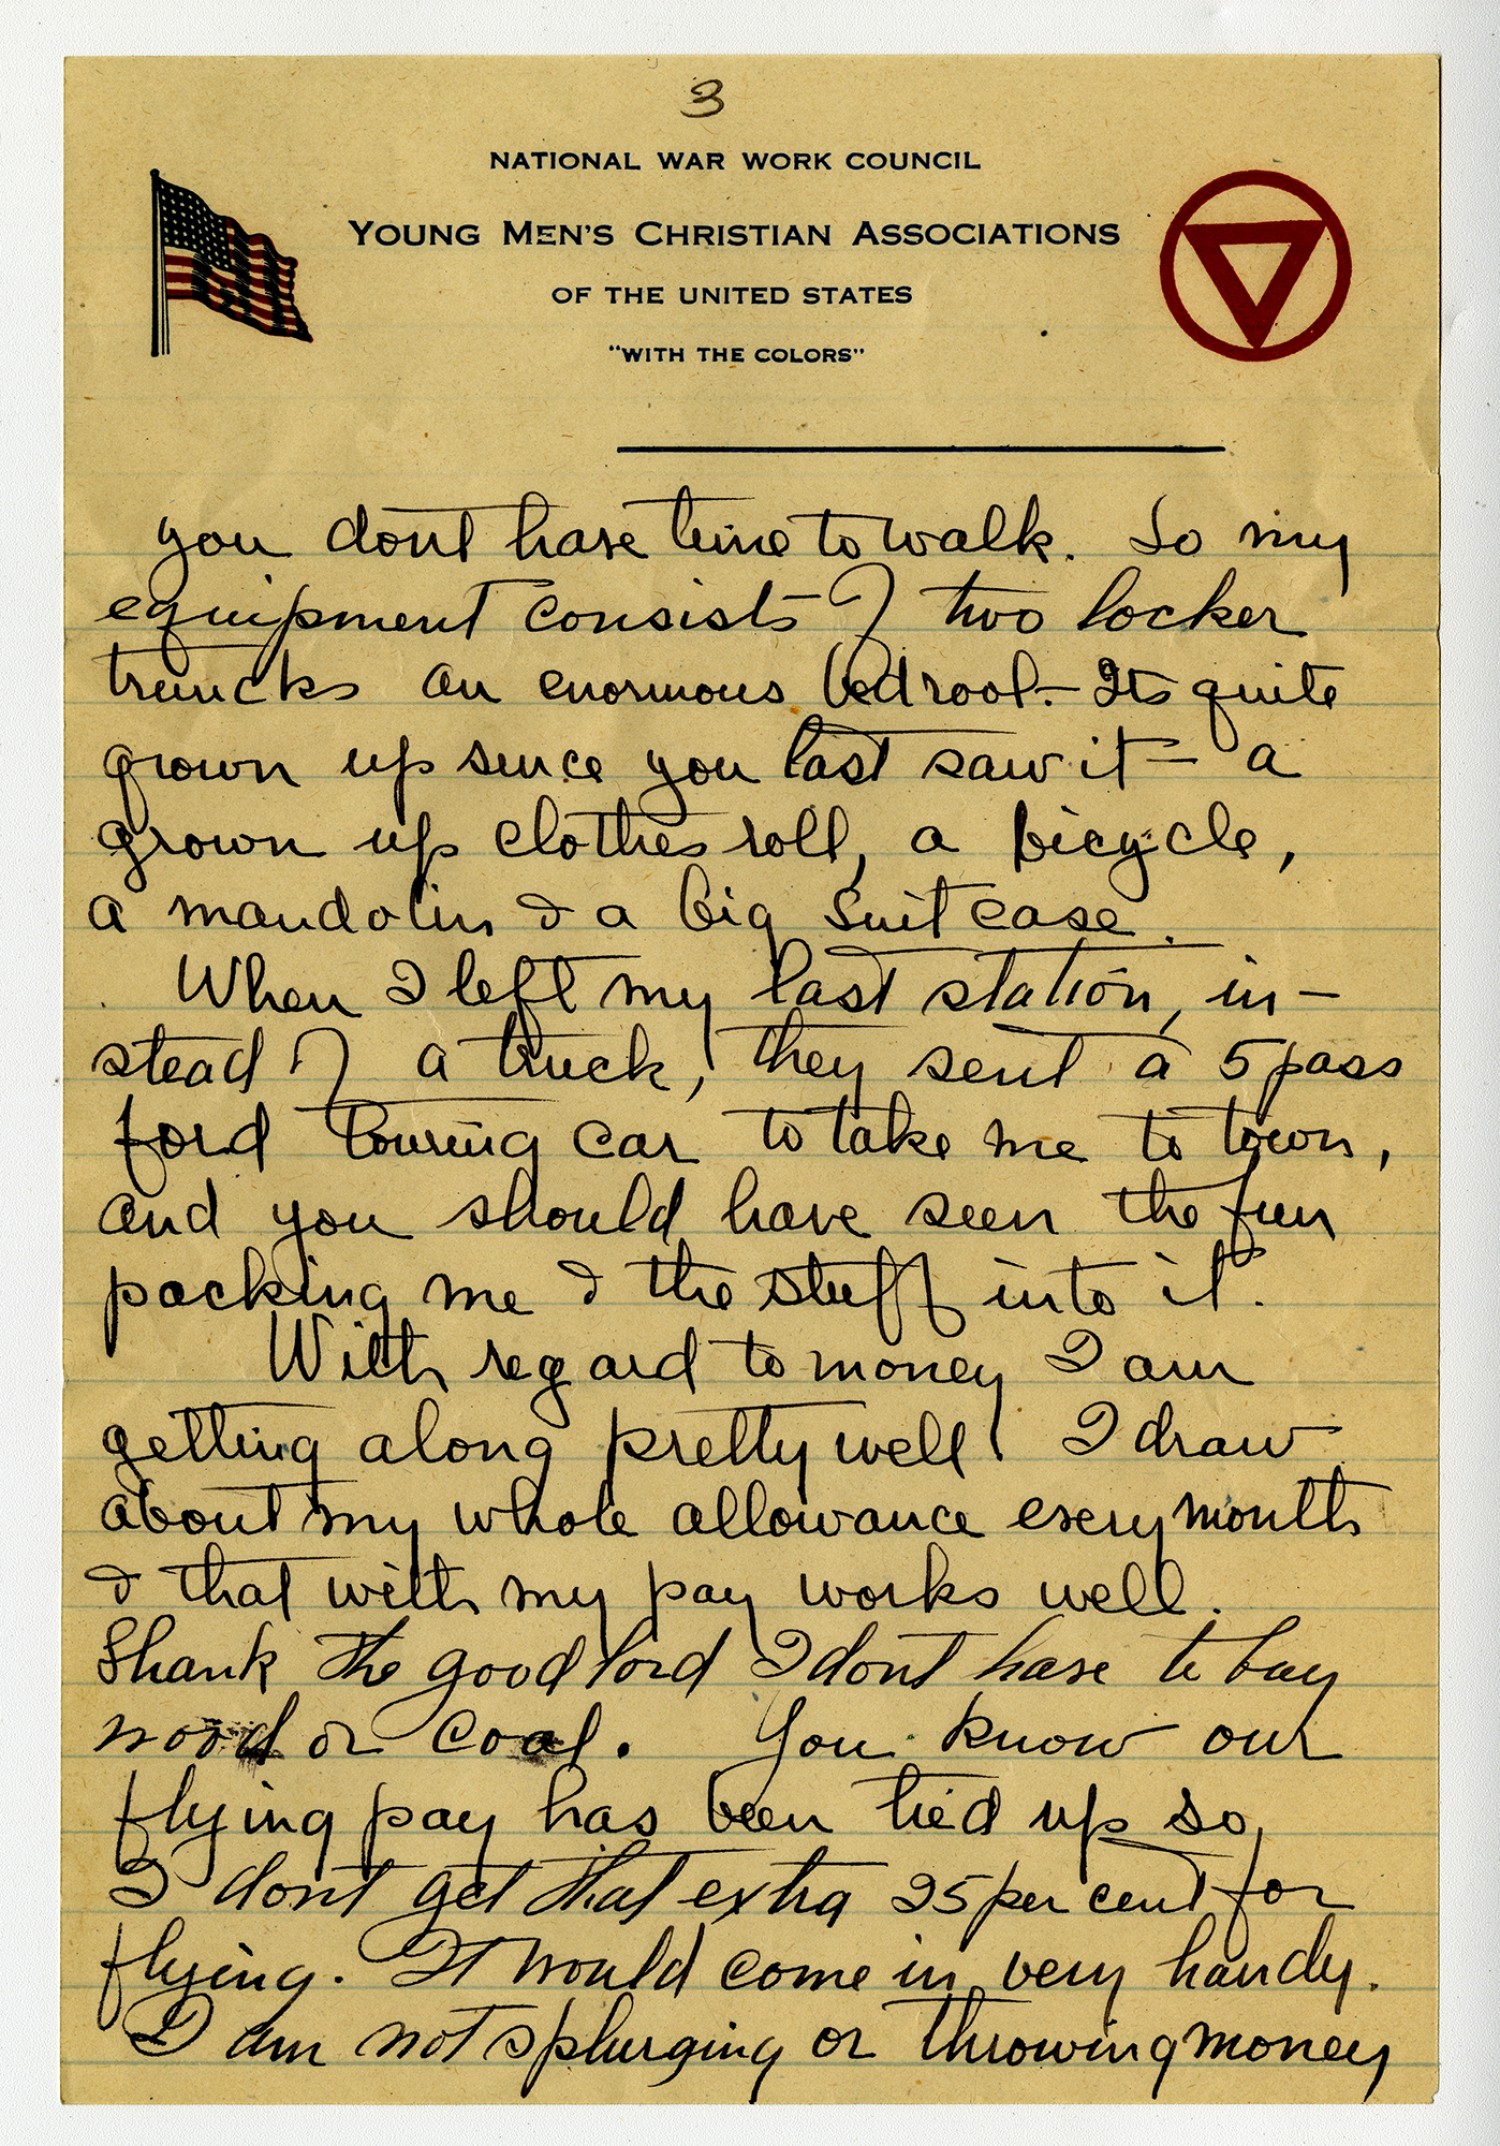 3
NATIONAL WAR WORK COUNCIL
YOUNG MEN'S CHRISTIAN ASSOCIATIONS
OF THE UNITED STATES
"WITH THE COLORS"
you dont have time to walk. So my
equipment consists of two locker
truncks an enormous bedrool - Its quite
grown up since you last saw it - a
grown up clothes roll, a bicycle,
a mandolin & a big suit case.
When I left my last station, in-
stead of a truck, they sent a 5 pass
ford touring car to take me to town,
and you should have seen the fun
packing me & the stuff into it.
With regard to money I am
getting along pretty well. I draw
about my whole allowance every month
& that with my pay works well.
Thank the good lord I dont have to buy
wood or coal. You know our
flying pay has been tied up so,
I dont get that extra 25 per cent for
flying. It would come in very handy.
I am not splurging or throwing money